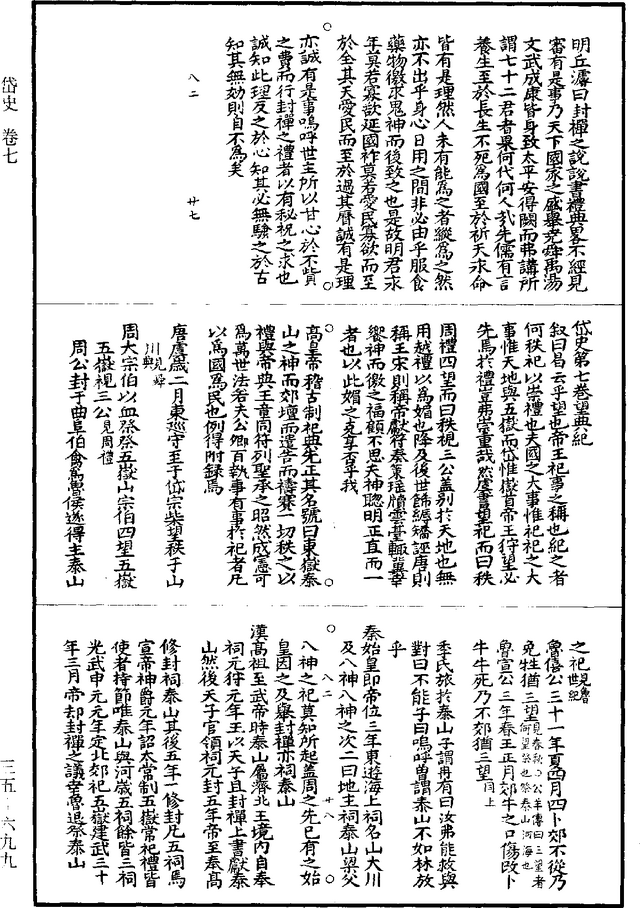 岱史　卷七
明丘濬曰封禪之說詩書禮典畧不經見
審有是事乃天下國家之盛舉堯舜禹湯
文武成康皆身致太平安得闕而弗講所
謂七十二君者果何代何人哉先儒有言
養生至於長生不死爲國至於祈天永命
皆有是理然人未有能爲之者縱爲之然
亦不出乎身心日用之間非必由乎服食
藥物徼求鬼神而後致之也是故明君求
年莫若寡欲延國祚莫若愛民寡欲而至
於全其天愛民而至於過其曆誠有是理
亦誠有是事嗚呼世主所以甘心於不貲
之費而行封禪之禮者以有秘祝之求也
誠知此理反之於心知其必無驗之於古
知其無効則自不爲矣
八二　廿七
岱史第七卷望典紀
叙曰易云乎望也帝王祀事之稱也紀之者
何秩祀以崇禮也夫國之大事惟祀祀之大
事惟天地與五嶽而岱惟嶽首帝王狩望必
先焉於禮豈弗崇重哉然虞書望祀而曰秩
周禮四望而曰秩視三公蓋别於天地也無
用越禮以爲媚也降及後世餙綈矯誣唐則
稱王宋則稱帝獻符奏策瑶牘雲臺輙冀幸
饗神而徼之福顧不思夫神聰明正直而一
者也以此媚之克享否乎我
高皇帝稽古制祀典先正其名號曰東嶽泰
山之神而郊壇而遣告而禱賽一切秩之以
禮與帝典王章同符列聖承之昭然成憲可
爲萬世法若夫公卿百執事有事於祀者凡
以爲國爲民也例得附録焉
唐虞歲二月東廵守至于岱宗柴望秩于山
川見舜典
周大宗伯以血祭祭五嶽小宗伯四望五嶽
五嶽視三公見周禮
周公封于曲阜伯禽爲魯侯遂得主泰山
之祀見魯世紀
魯僖公三十一年夏四月四卜郊不從乃
免牲猶三望見春秋○公羊傳曰三望者何望祭也祭泰山河海也
魯宣公三年春王正月郊牛之口傷改卜
牛牛死乃不郊猶三望同上
季氏旅於泰山子謂冉有曰汝弗能救與
對曰不能子曰嗚呼曾謂泰山不如林放
乎
秦始皇即帝位三年東遊海上祠名山大川
及八神八神之次二曰地主祠泰山梁父
八二　廿八
八神之祀莫知所起蓋周之先已有之始
皇因之及舉封禪亦祠泰山
漢高祖至武帝時泰山屬濟北王境内自奉
祠元狩元年王以天子且封禪上書獻泰
山然後天子官領祠元封五年帝至奉高
修封祠泰山其後五年一修封凡五祠焉
宣帝神爵元年詔太常制五嶽常祀禮皆
使者持節唯泰山與河歲五祠餘皆三祠
光武中元元年定北郊祀五嶽建武三十
年三月帝却封禪之議幸魯退祭泰山
三五－六九九